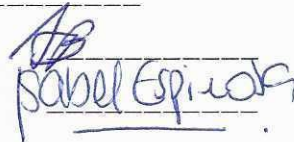 Isabel Espinosa